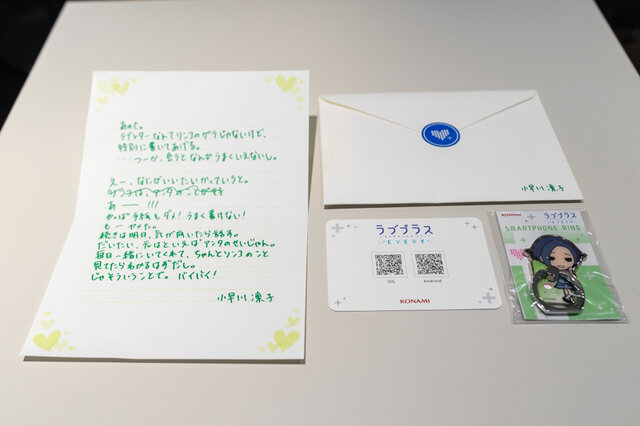 あのさ。
ラブレターなんてリンコのガラじゃないけど、
特別に書いてあげる。
・・・つーか、会うとなんかうまくいえないし。
えー、なにがいいたいかっていうと。
リンコは、アンタのことが好
あ――!!!
やっぱ手紙もダメ！うまく書けない！
もー やめた。
続きは明日、気が向いたら話す。
だいたい、元はといえばアンタのせいじゃん。
毎日一緒にいてくれて、ちゃんとリンコのこと
見てたらわかるはずだし。
じゃそういうことで。バイバイ！
小早川 凛子
小早川 凛子
ラブプラス
EVERY
iOS
Android
KONAMI
KONAMI
ラブプラス
EVERY
SMARTPHONE RING